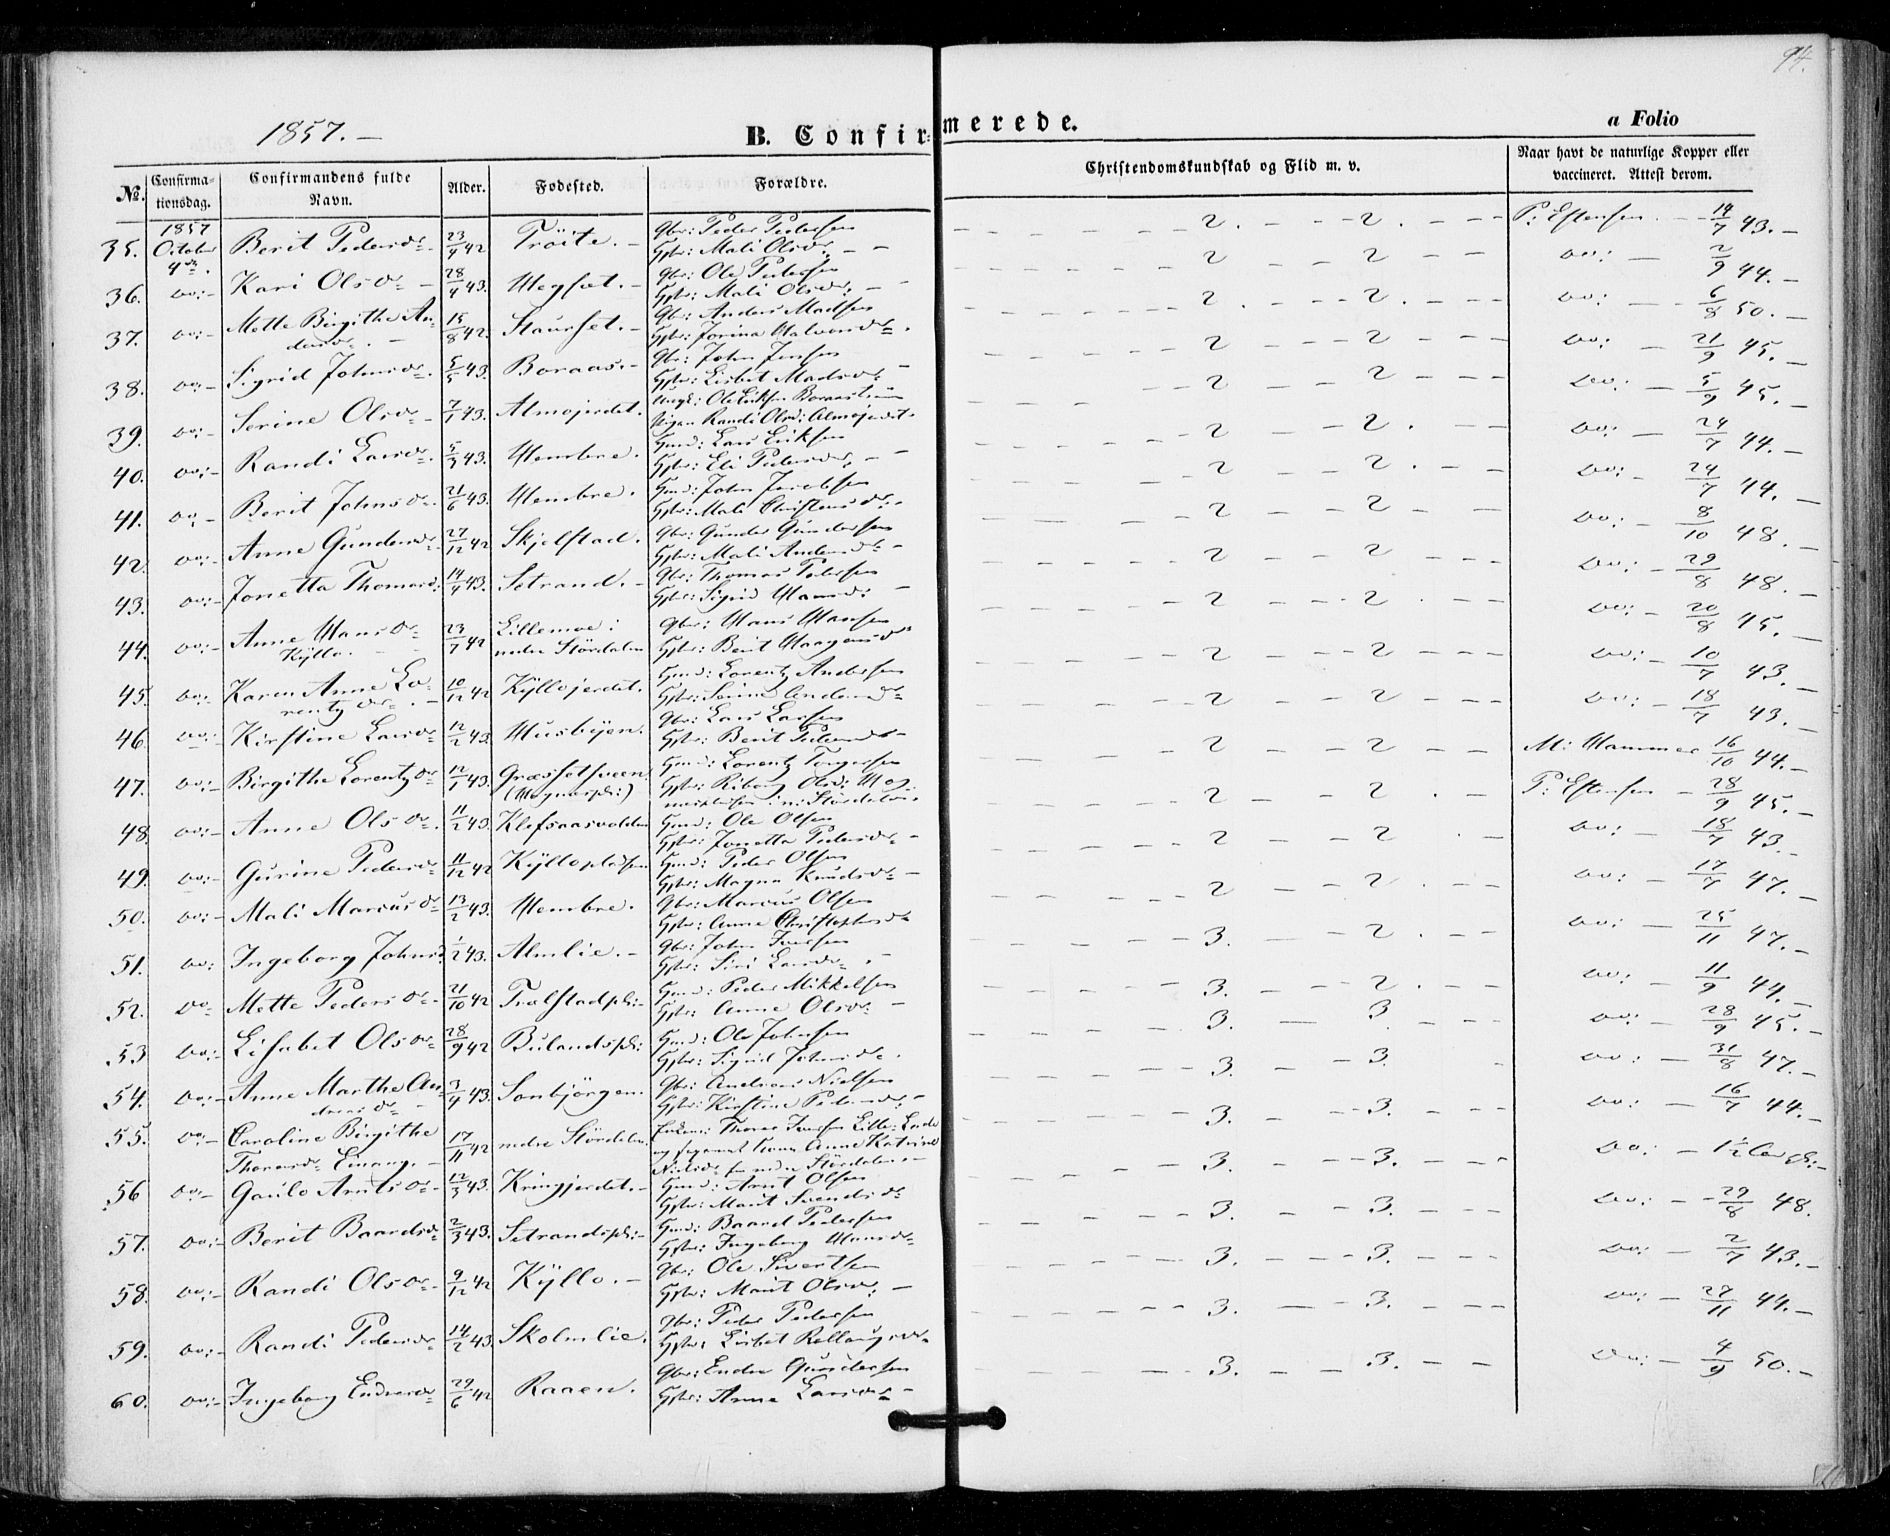 94.
1857.–
B. Confirmerede.
a Folio
No.
Confirmationsdag.
Confirmandens fulde Navn.
Alder.
Fødested.
Forældre.
Christendomskundskab og Flid m. v.
Naar havt de naturlige Kopper eller vaccineret. Attest derom.
35. 1857 October 4de. Berit Pedersdr 23/4 42 Tröite. Gbr: Peder Pedersen Hstr: Mali Olsdr. 2. 2. P: Estensen 14/7 43.
36. do: Kari Olsdr 28/4 43. Gbr: Ole Pedersen Hstr: Mali Olsdr. 2 2 do: 2/9 44.
37. do: Mette Birgithe Andersdr. 15/8 42. Gbr: Anders Madsen Hstr: Jorina Halvorsdr. 2. 2. do: 6/8 50.
38. do: Sigrid Johnsdr. 5/5 43. Boraas. Gbr: John Jensen Hstr: Lisbet Madsdr 2 2 do: 21/9 45.
39. do: Serine Olsdr 7/1 43. Almojerdet. Ungk: Ole Eriksen Pigen Randi Olsd: Almojerdet 2 2 do: 5/9 45.
40. do: Randi Larsdr. 5/3 43. Hembre. Hmd: Lars Eriksen Hstr: Eli Pedersdr. 2 2. do: 24/7 44.
41. do: Berit Johnsdr. 21/6 43. Hembre. Hmd: John Jacobsen Hstr: Mali Christensdr. 2 2. do: 24/7 44.
42. do: Anne Gundersdr 27/12 42 Skjelstad. Gbr: Gunder Gundersen Hstr: Mali Andersdr 2 2 do: 8/10 48.
43. do: Jonetta Thomasd: 14/4 43. Setrand. Gbr: Thomas Pedersen Hstr: Sigrid Hansd: 2 2 do: 29/8 48.
44. do: Anne Hansdr Kÿllo. 23/7 42 Lillemoe i nedre Stördalen Gbr: Hans Hansen Hstr: Berit Haagensdr 2 2. do: 20/8 45.
45. do: Karen Anne Lorentzdr. 10/12 42 Kÿllojerdet. Hmd: Lorentz Andersen Hstr: 2 2 do: 10/7 43.
46. do: Kirstine Larsdr 12/2 43. Husbÿen. Gbr: Lars Larsen Hstr: Berit Pedersdr 2 2 do: 18/7 43.
47. do: Birgithe Lorentzdr 12/1 43. Hmd: Lorentz Torgersen Hstr: Riborg Olsd: i n: Stördalen. 2 2 M: Hammer 16/10 44.
48. do: Anne Olsdr. 11/2 43. Klefsaasvolden Hmd: Ole Olsen Hstr: Jonetta Pedersdr 2 2 P: Estensen 28/9 45.
49. do: Gurine Pedersdr 11/12 42 Kÿllopladsen Hmd: Peder Olsen Hstr: Magna Knudsdr 2 2 do: 18/7 43.
50. do: Mali Marcusdr 13/2 43. Hembre. Gbr: Marcus Olsen Hstr: Anne Christophersdr 2 2. do: 17/7 47.
51. do: Ingeborg Johnsd: 1/2 43. Almlie. Gbr: John Iversen Hstr: Siri Larsdr. 3. 2. do: 25/11 47.
52. do Mette Pedersdr. 21/10 42 Trælstadpl: Hmd: Peder Mikkelsen Hstr: Anne Olsdr 3. 2. do: 11/9 44.
53 do: Lisabet Olsdr 28/9 42 Bulandspl: Hmd: Ole Johnsen Hstr: Sigrid Johnsdr. 3. 3. do: 28/9 45.
54. do: Anne Marthe Andreasdr 3/4 43. Sonbjörgen. Gbr: Andreas Nielsen Hstr: Kirstine Pedersdr. 3. 3. do: 31/8 47.
55. do: Caroline Birgithe Thoresdr Einang. 17/11 42 nedre Stördalen. Enkem: Thore Iversen Anne Katrine Nielsdr fra nedre Stördalen 3. 3. do: 16/7 44.
56 do: Gaulo Arntsdr 12/3 43. Kringjerdet. Hmd: Arnt Olsen Hstr: Marit Svendsdr 3. 3. do:
57. do: Berit Baardsdr 2/3 43. Setrandspl: Hmd: Baard Pedersen Hstr: Ingeborg Hansdr 3. 3. do: 29/8 48.
58. do: Randi Olsdr 9/12 42 Kÿllo. Gbr: Ole Sivertsen Hstr: Marit Olsdr. 3. 3. do: 2/7 43.
59. do: Randi Pedersdr 14/2 43. Skolmlie. Gbr: Peder Pedersen Hstr: Lisbet 3. 3. do: 27/11 44.
60. do: Ingeborg Endresdr 29/6 42 Raaen. Gbr: Endre Gundersen Hstr: Anne Larsdr 3. 3. do: 4/9 50.